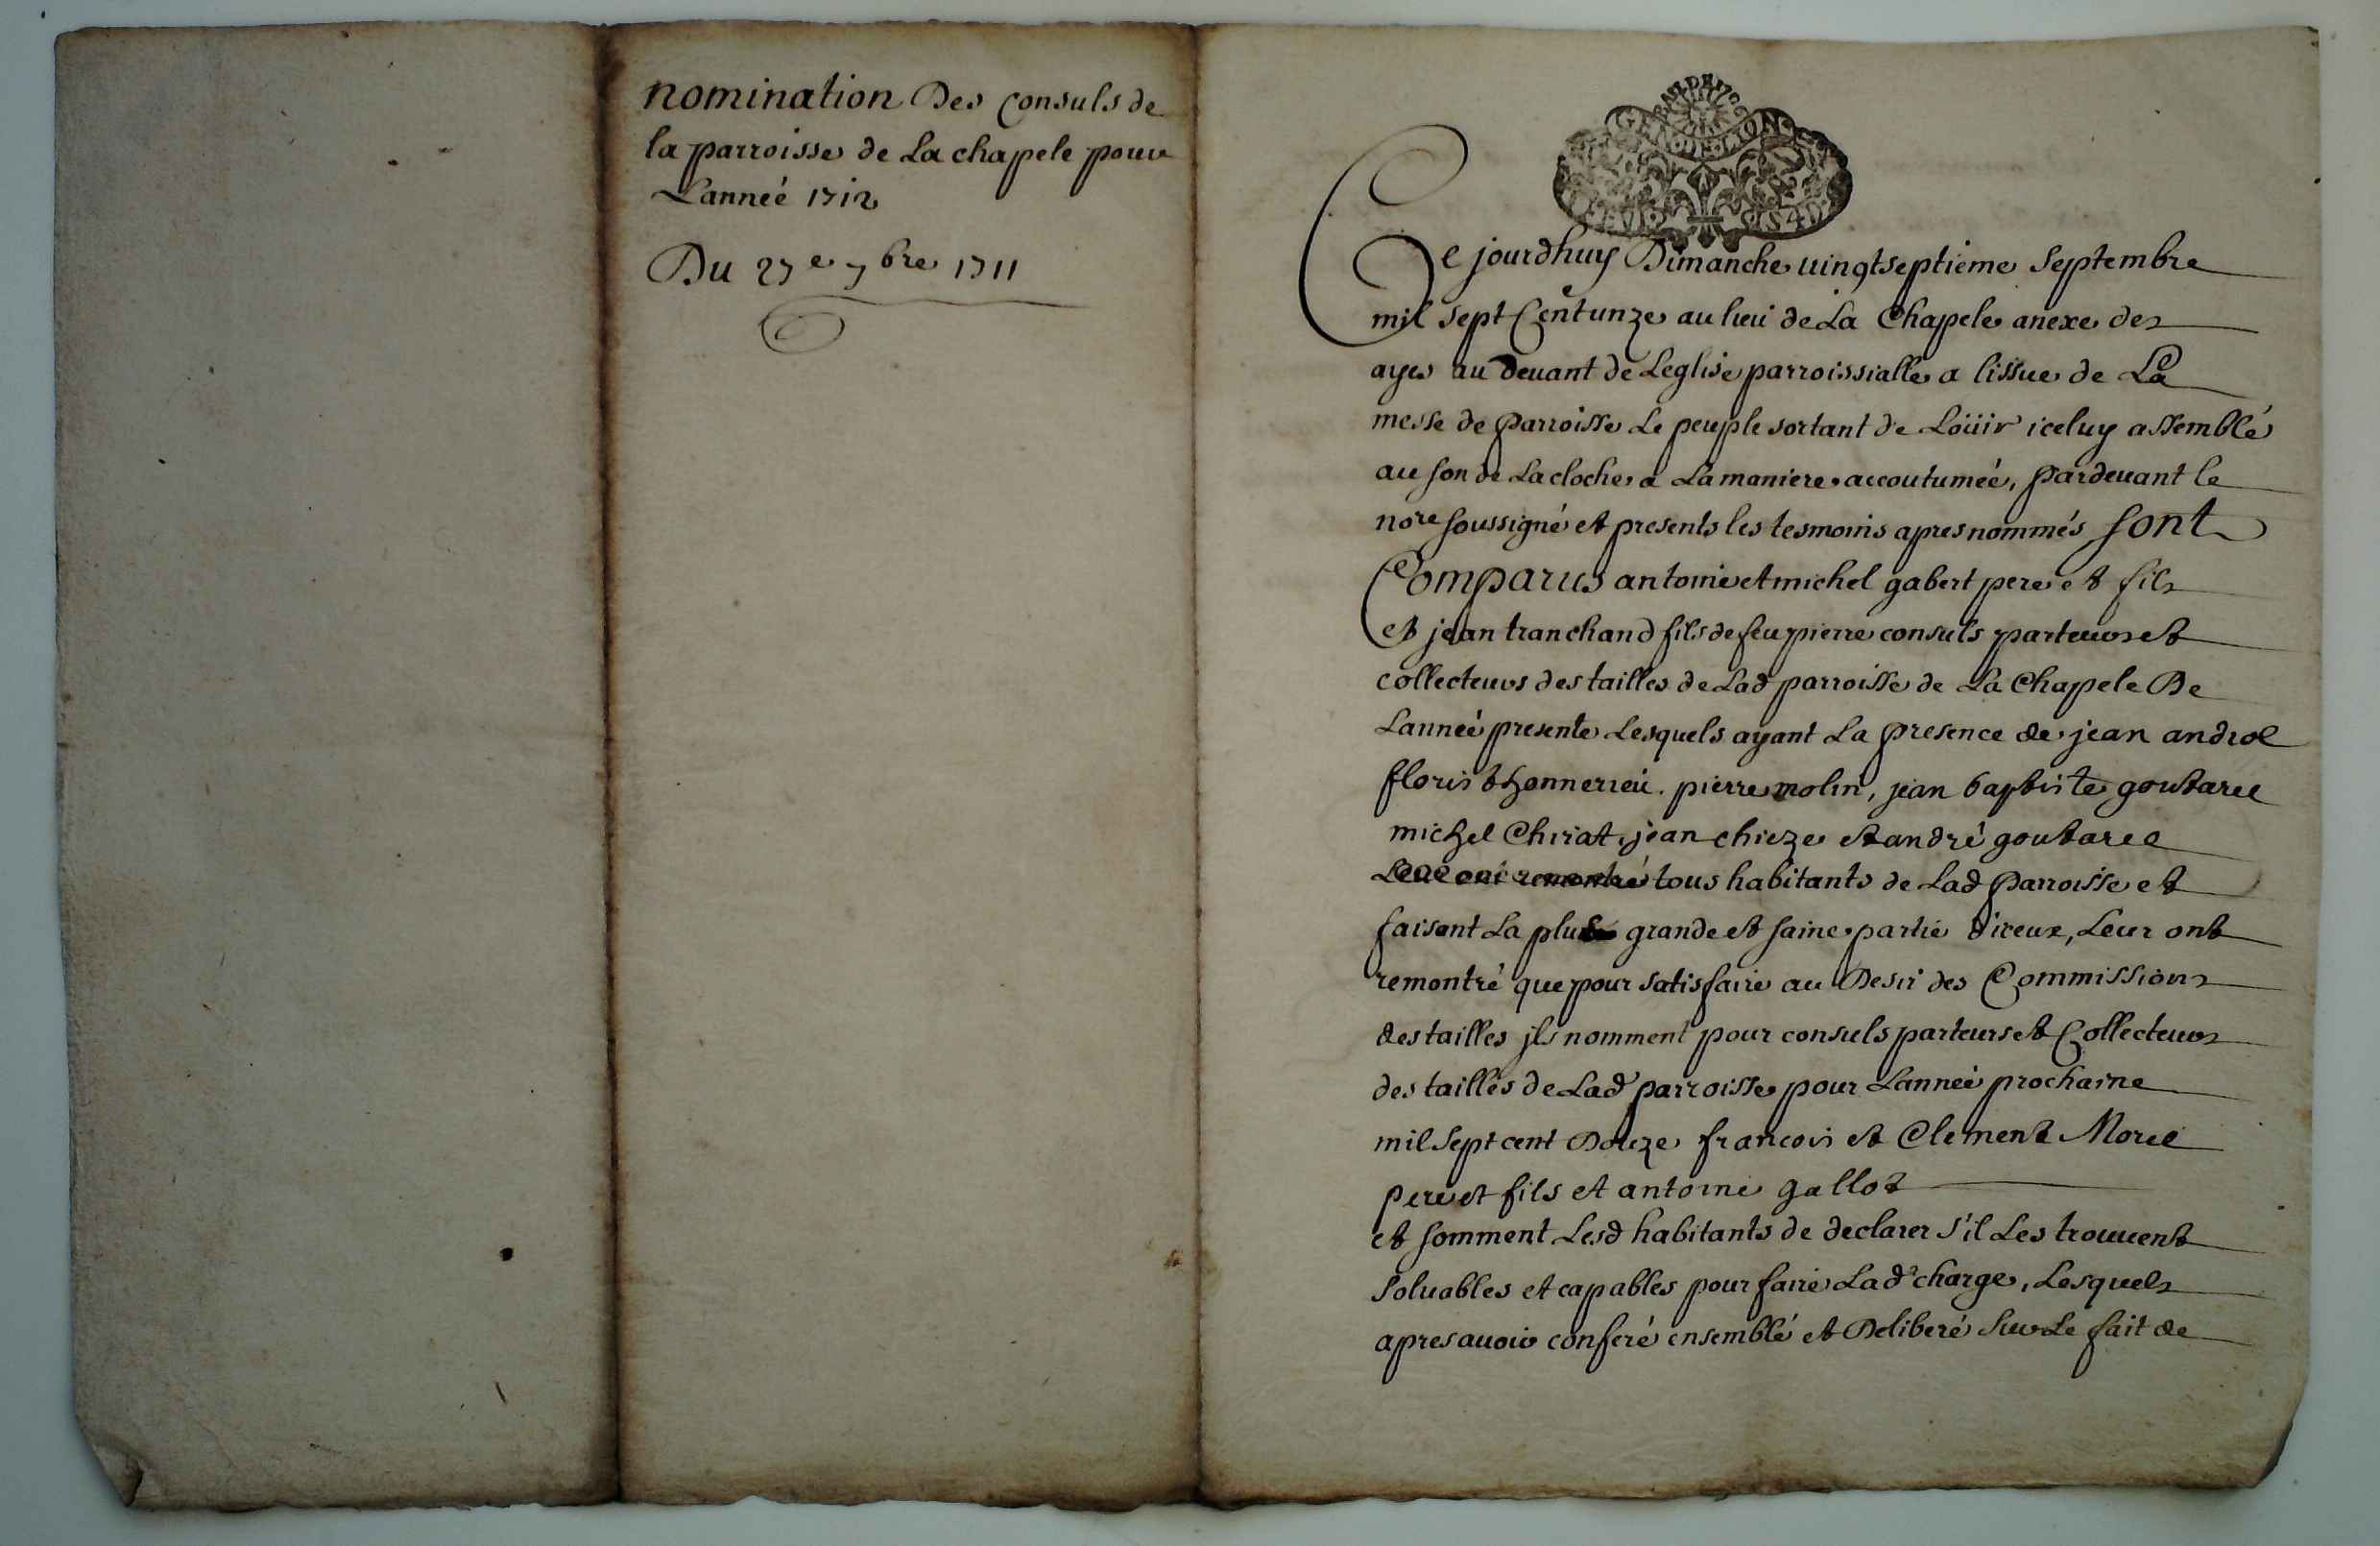 nomination Des Consuls de
la parroisse de La chapele pour
L'anneé 1712
Du 27e 7bre 1711
GENERAL DE
MOULINS
Ce jourdhuy Dimanche vingtseptieme Septembre
mil sept Cent unze au lieu de La Chapele anexe des
ayes au devant de Leglise parroissialle a lissue de La
messe de Parroisse Le peuple sortant de Loüir iceluy assemblé
au son de La cloche a La maniere accoutumée, Pardevant le
nore soussigné et presents les tesmoins apres nommés sont
Comparus antoine et michel gabert pere et fils
et jean tranchand fils de feu pierre consuls parteurs et
collecteurs des tailles de Lad parroisse de La Chapele De
Lanneé presente Lesquels ayant La presence de jean androl
floris thonnerieu. pierre molin, jean baptiste goutarel
michel Chirat, jean chieze et andré goutarel
Leur ont remontré tous habitants de Lad Parroisse et
faisant La plus grande et saine partie d'iceux, Leur ont
remontré que pour satisfaire au Desir des Commissions
des tailles jls nomment pour consuls parteurs et Collecteurs
des tailles de Lad parroisse pour Lanneé prochaine
mil Sept cent Douze francois et Clement Morel
Pere et fils et antoine gallot
et somment Lesd habitants de declarer s'il Les trouvent
solvables et capables pour faire Lad charge, Lesquels
apres avoir conferé ensemblé et Deliberé Sur Le fait de